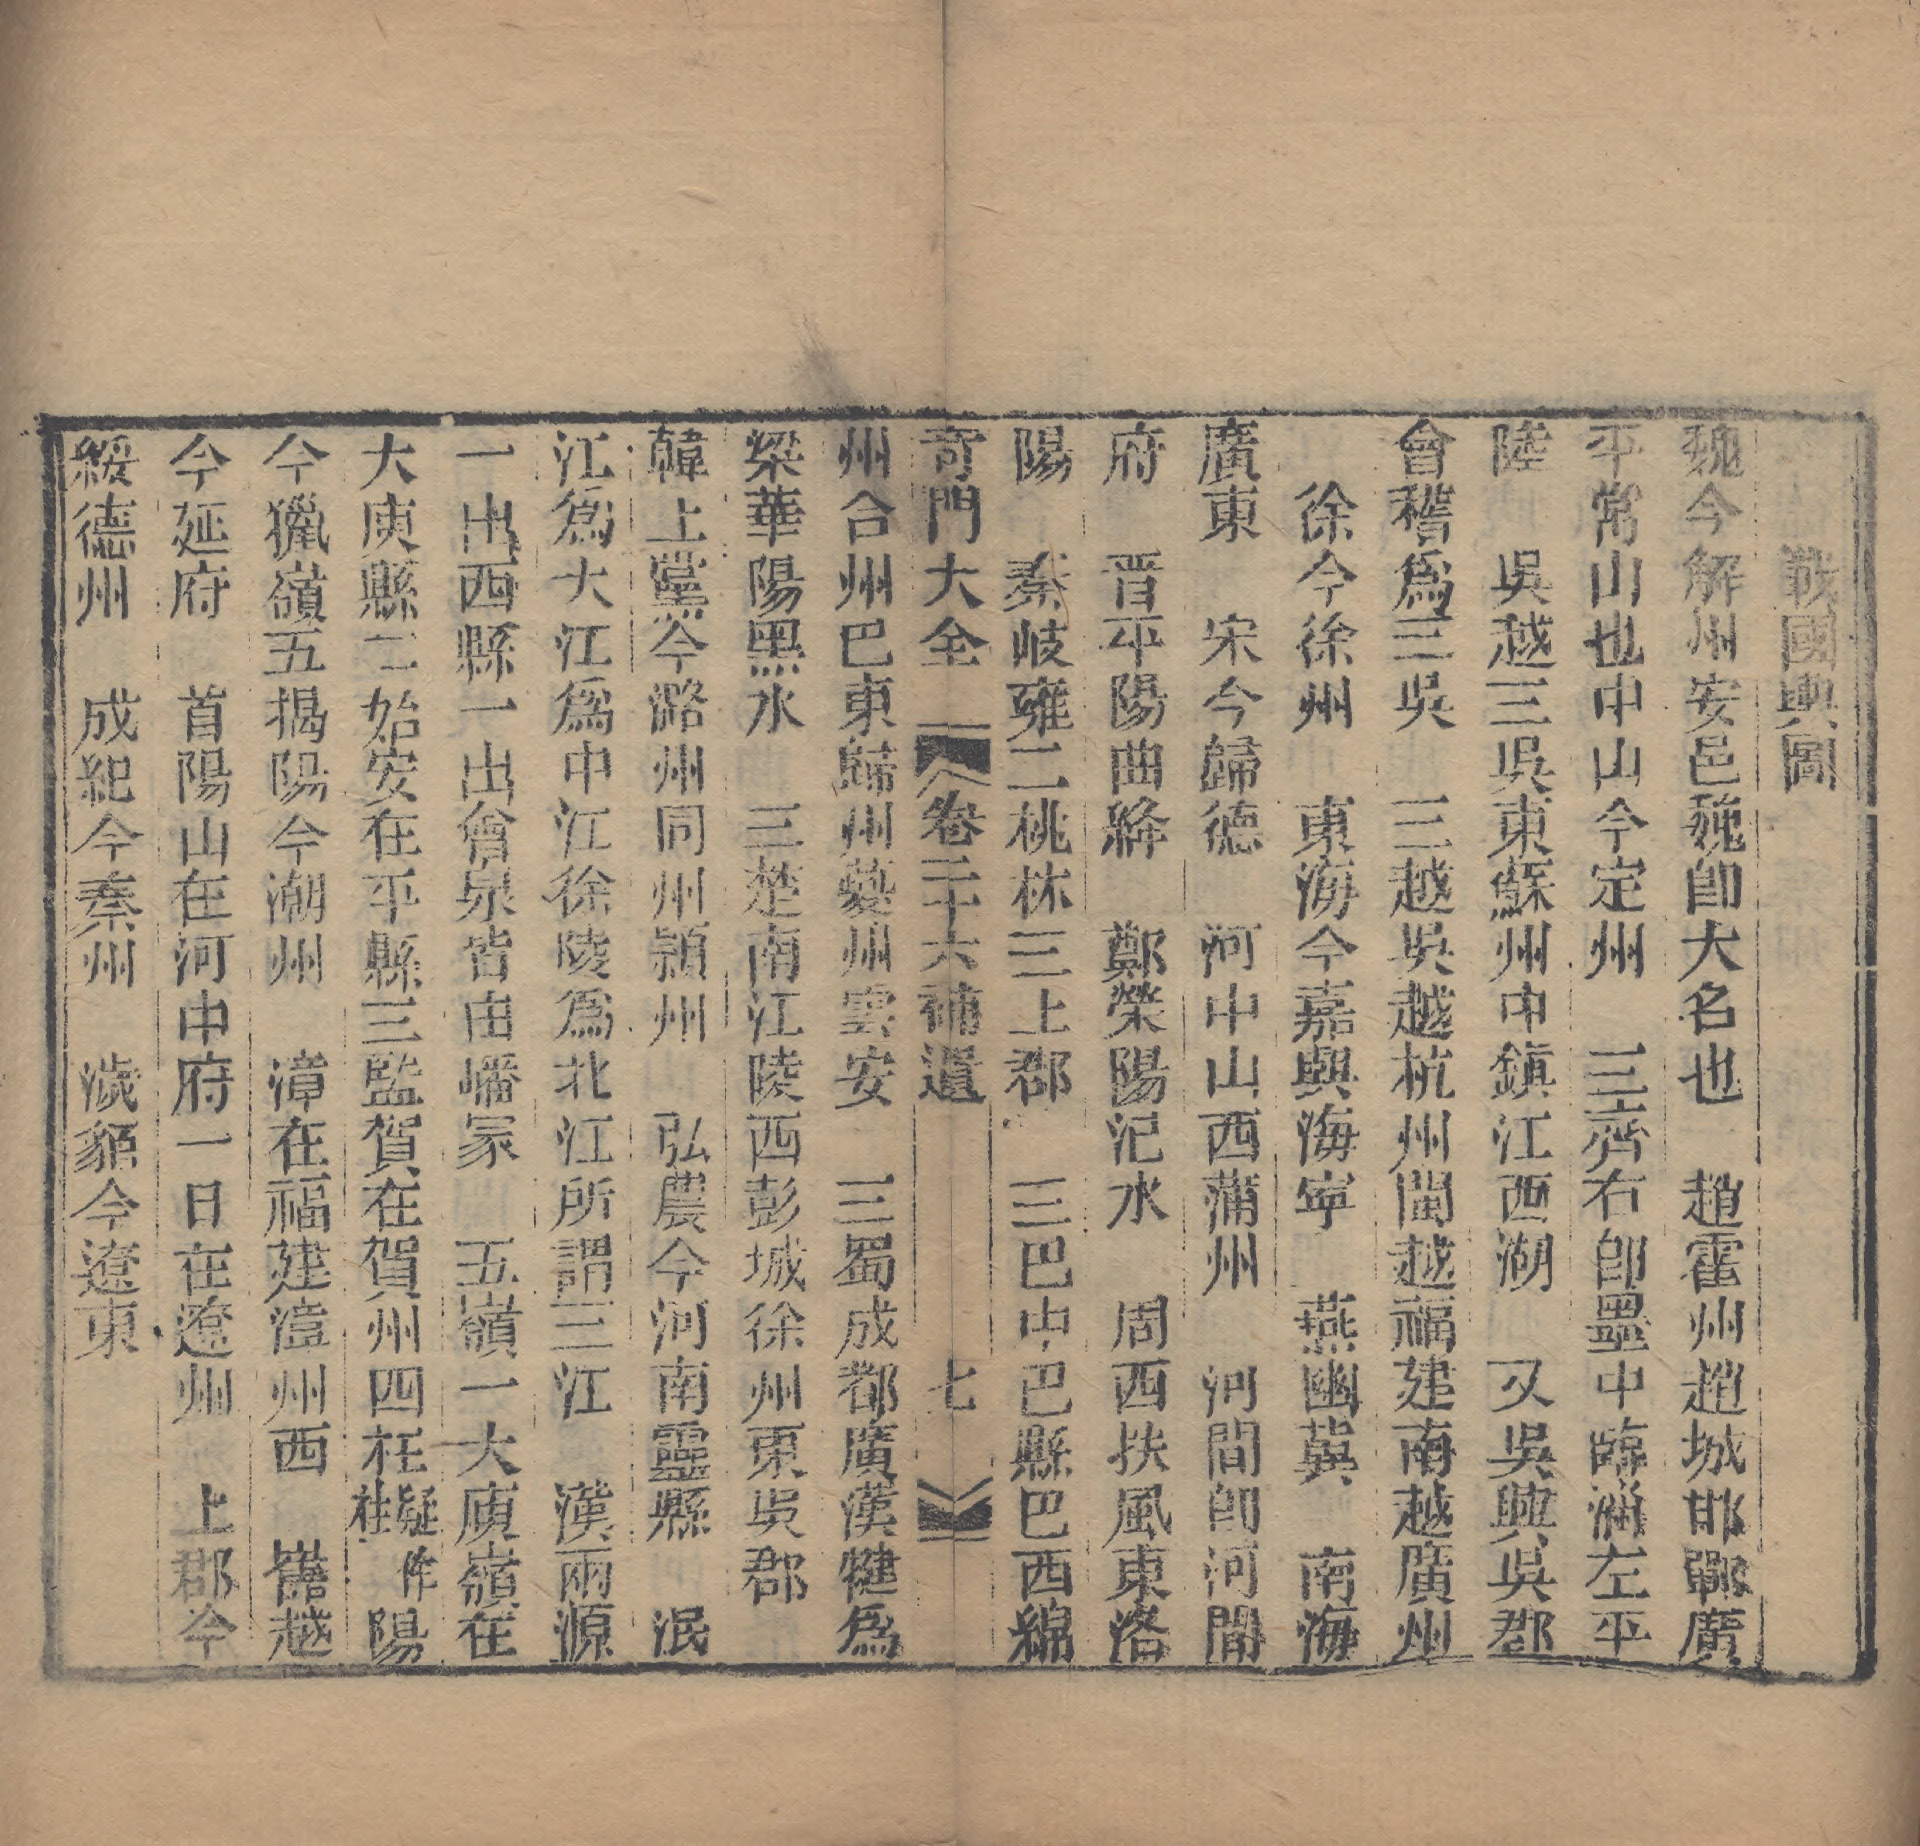 戰國輿圖
魏今解州安邑魏卽大名也　趙霍州趙城邯鄲廣
平常山也中山今定州　三齊右卽墨中臨淄左平
陸　吳越三吳東蘇州中鎮江西湖　又吳興吳郡
會稽爲三吳　三越吳越杭州閩越福建南越廣州
徐今徐州　東海今嘉興海寧　燕幽冀　南海
廣東　宋今歸德　河中山西蒲州　河間卽河間
府　晋平陽曲絳　鄭滎陽汜水　周西扶風東洛
陽　秦岐雍二桃林三上郡　三巴中巴縣巴西綿
奇門大全　卷二十六補遺　七
州合州巴東歸州蘷州雲安　三蜀成都廣漢犍爲
梁華陽黑水　三楚南江陵西彭城徐州東吳郡
韓上黨今潞州同州潁州　弘農今河南靈縣　泯
江爲大江爲中江徐陵爲北江所謂三江　漢兩源
一出西縣一出會泉皆由嶓冢　五嶺一大庾嶺在
大庾縣二始安在平縣三監賀在賀州四枉疑作桂陽
今獵嶺五揭陽今潮州　漳在福建漳州西　嶲越
今延府　首陽山在河中府一曰在遼州　上郡今
綏德州　成紀今秦州　濊貊今遼東